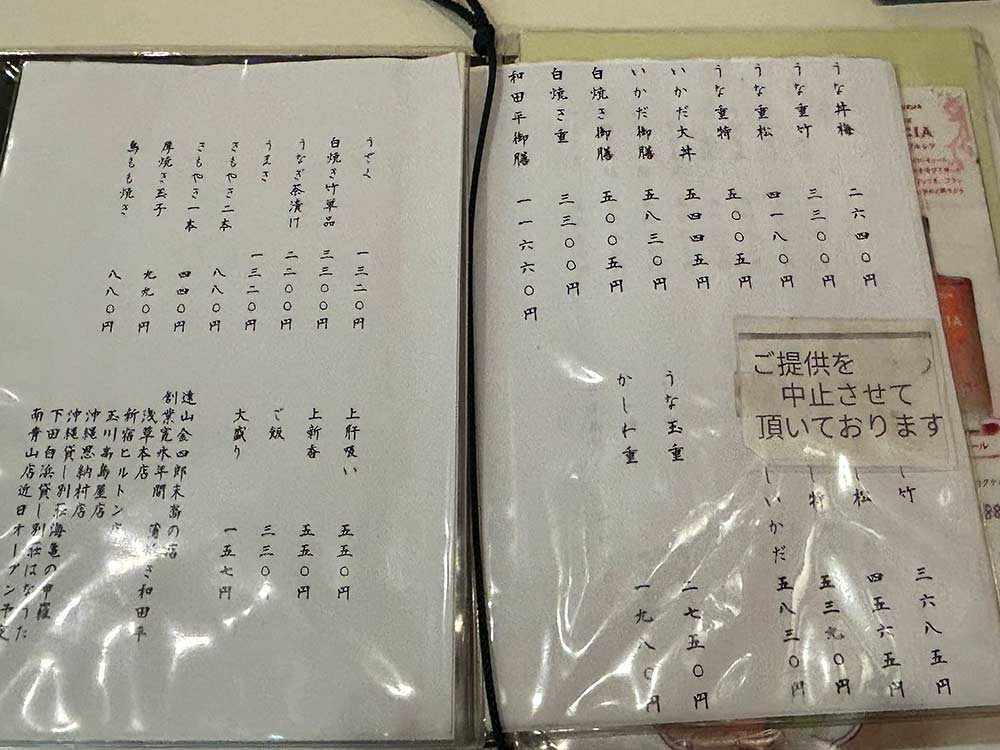 うな丼梅 二六四〇円
うな重竹 三三〇〇円
うな重松 四一八〇円
うな重特 五〇〇五円
いかだ大丼 五四四五円
いかだ御膳 五八三〇円
白焼き御膳 五〇〇五円
白焼き重 三三〇〇円
和田平御膳 一一六六〇円
ご提供を
中止させて
頂いております
竹 三六八五円
し松 四五六五円
特 五三九〇円
しいかだ 五八三〇円
うな玉重 二七五〇円
かしわ重 一九八〇円
うざく 一三二〇円
白焼き竹単品 三三〇〇円
うなぎ茶漬け 二二〇〇円
うまき 一三二〇円
きもやき二本 八八〇円
きもやき一本 四四〇円
厚焼き玉子 九九〇円
鳥もも焼き 八八〇円
上肝吸い 五五〇円
上新香 五五〇円
ご飯 三三〇
大盛り 一五七円
遠山金四郎末裔の店
創業寛永年間 蒲焼き和田平
浅草本店
新宿ヒルトン店
玉川高島屋店
沖縄恩納村店
沖縄貸し別荘海亀の甲羅
下田白浜貸し別荘はなうた
南青山店近日オープン予定